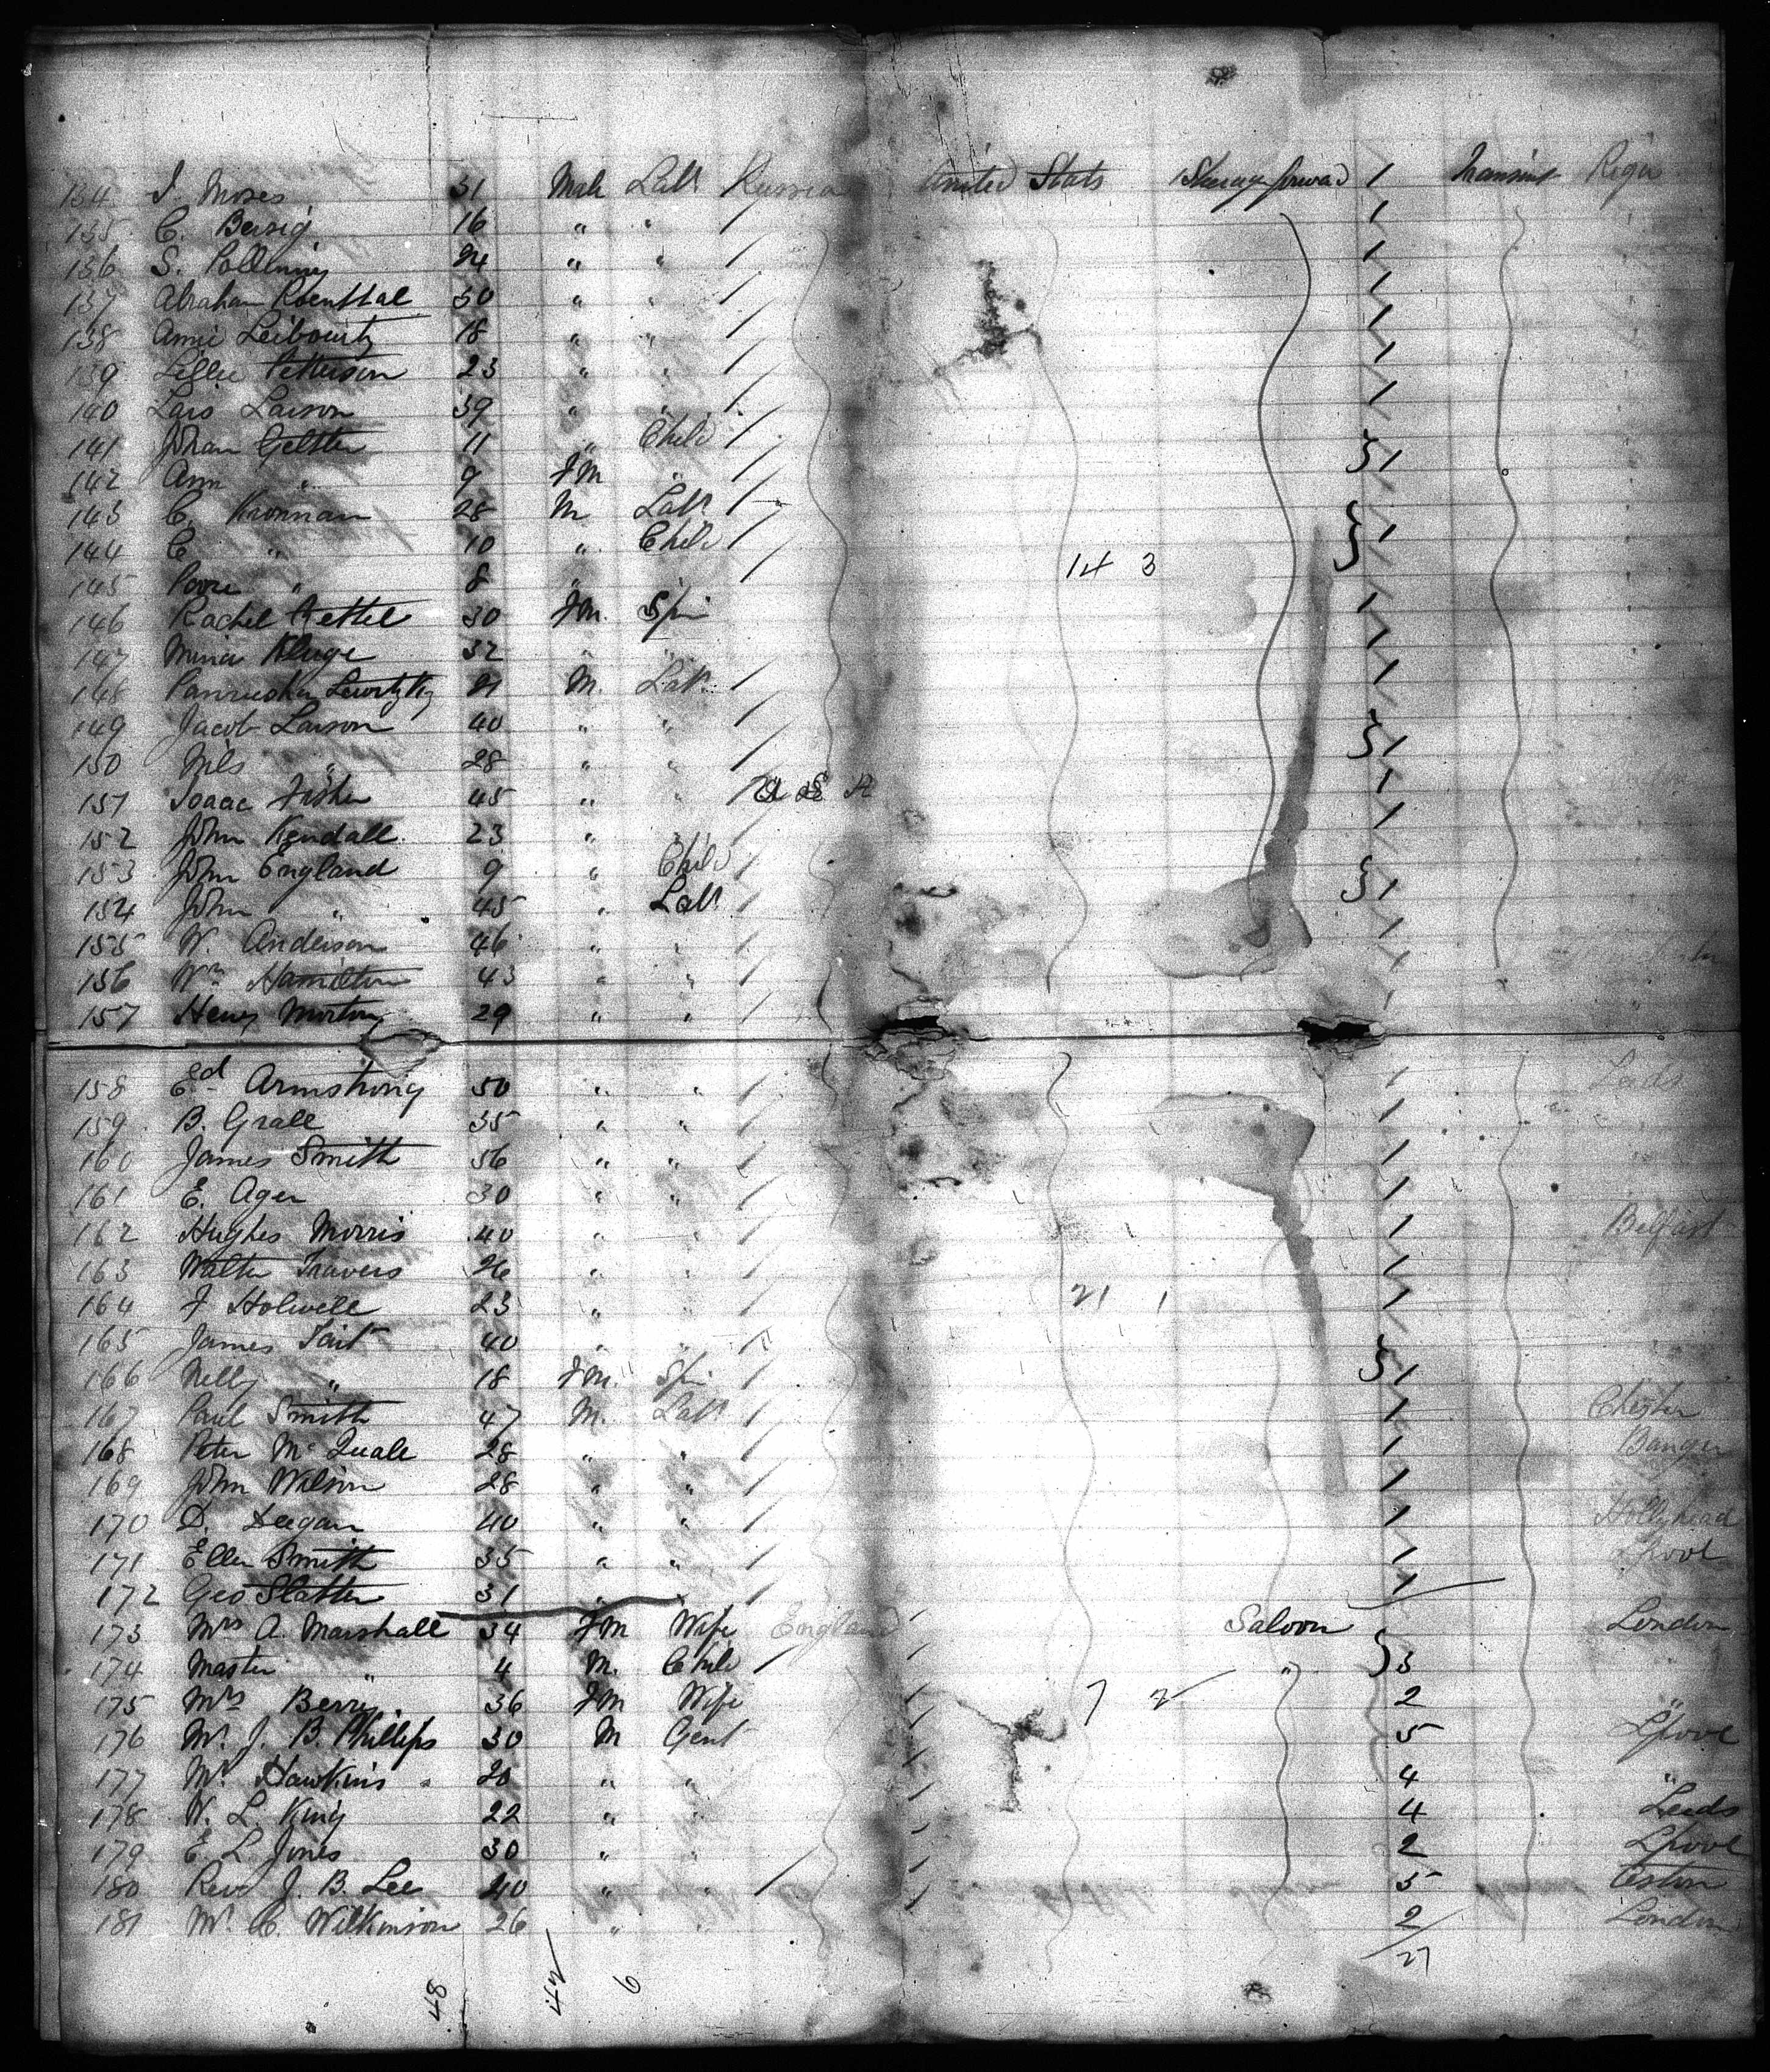 134 I. Moses 31 Male Labr Russia United States Steerage forward 1 Transient Riga
135 C. Bersig 16 " " 1
136 S. 24 " " 1
137 Abraham Rosenthal 30 " " 1
138 Amie Leibowitz 18 " " 1
139 Petterson 23 " " 1
140 Lars Larson 39 " " 1
141 Johan Gelster 11 " Child
142 Ann " 9 Fm " 1
143 C. Kronman 28 M Labr
144 C " 10 " Child 1
145 " 8 " 14 3
146 Rachel Bettel 30 Fm. Spi 1
147 Minia Kluge 32 " " 1
148 21 M. Labr 1
149 Jacob Larson 40 " "
150 Nils " 28 " " 1
151 Isaac Fisher 45 " " U S A 1
152 John Kendall 23 " 1
153 John England 9 " Child
154 John " 45 " Labr 1
155 W. Anderson 46 " " 1
156 Wm Hamilton 43 " " 1
157 Henry Morton 29 " " 1
158 Ed Armstrong 50 " " 1 Leeds
159 B. Grall 35 " " 1 "
160 James Smith 56 " " 1
161 E. Ager 30 " " 1
162 Hughes Morris 40 " " 1 Belfast
163 Walter Travers 26 " " 1
164 F Holwell 23 " " 21 1 1
165 James Tait 40 " "
166 Nelly " 18 Fm. Spi 1
167 Paul Smith 47 M. Labr 1 Chester
168 Peter McQuale 28 " " 1 Bangor
169 John Wilson 28 " " 1
170 D. Deegan 40 " " 1 Hollyhead
171 Ellen Smith 35 " " 1 Lpool
172 Geo Slatter 31 " 1
173 Mrs A. Marshall 34 Fm Wife England Saloon London
174 Master " 4 M. Child " 3
175 Mrs Berry 36 Fm Wife 7 2 2 "
176 Mr. J. B. Phillips 30 M Gent 5 Lpool
177 Mr Hawkins 20 " " 4 "
178 W. L. King 22 " " 4 Leeds
179 E. L. Jones 30 " " 2 Lpool
180 Revd J. B. Lee 40 " " 5
181 Mr. C. Wilkinson 26 " " 2 London
27
48 42 6